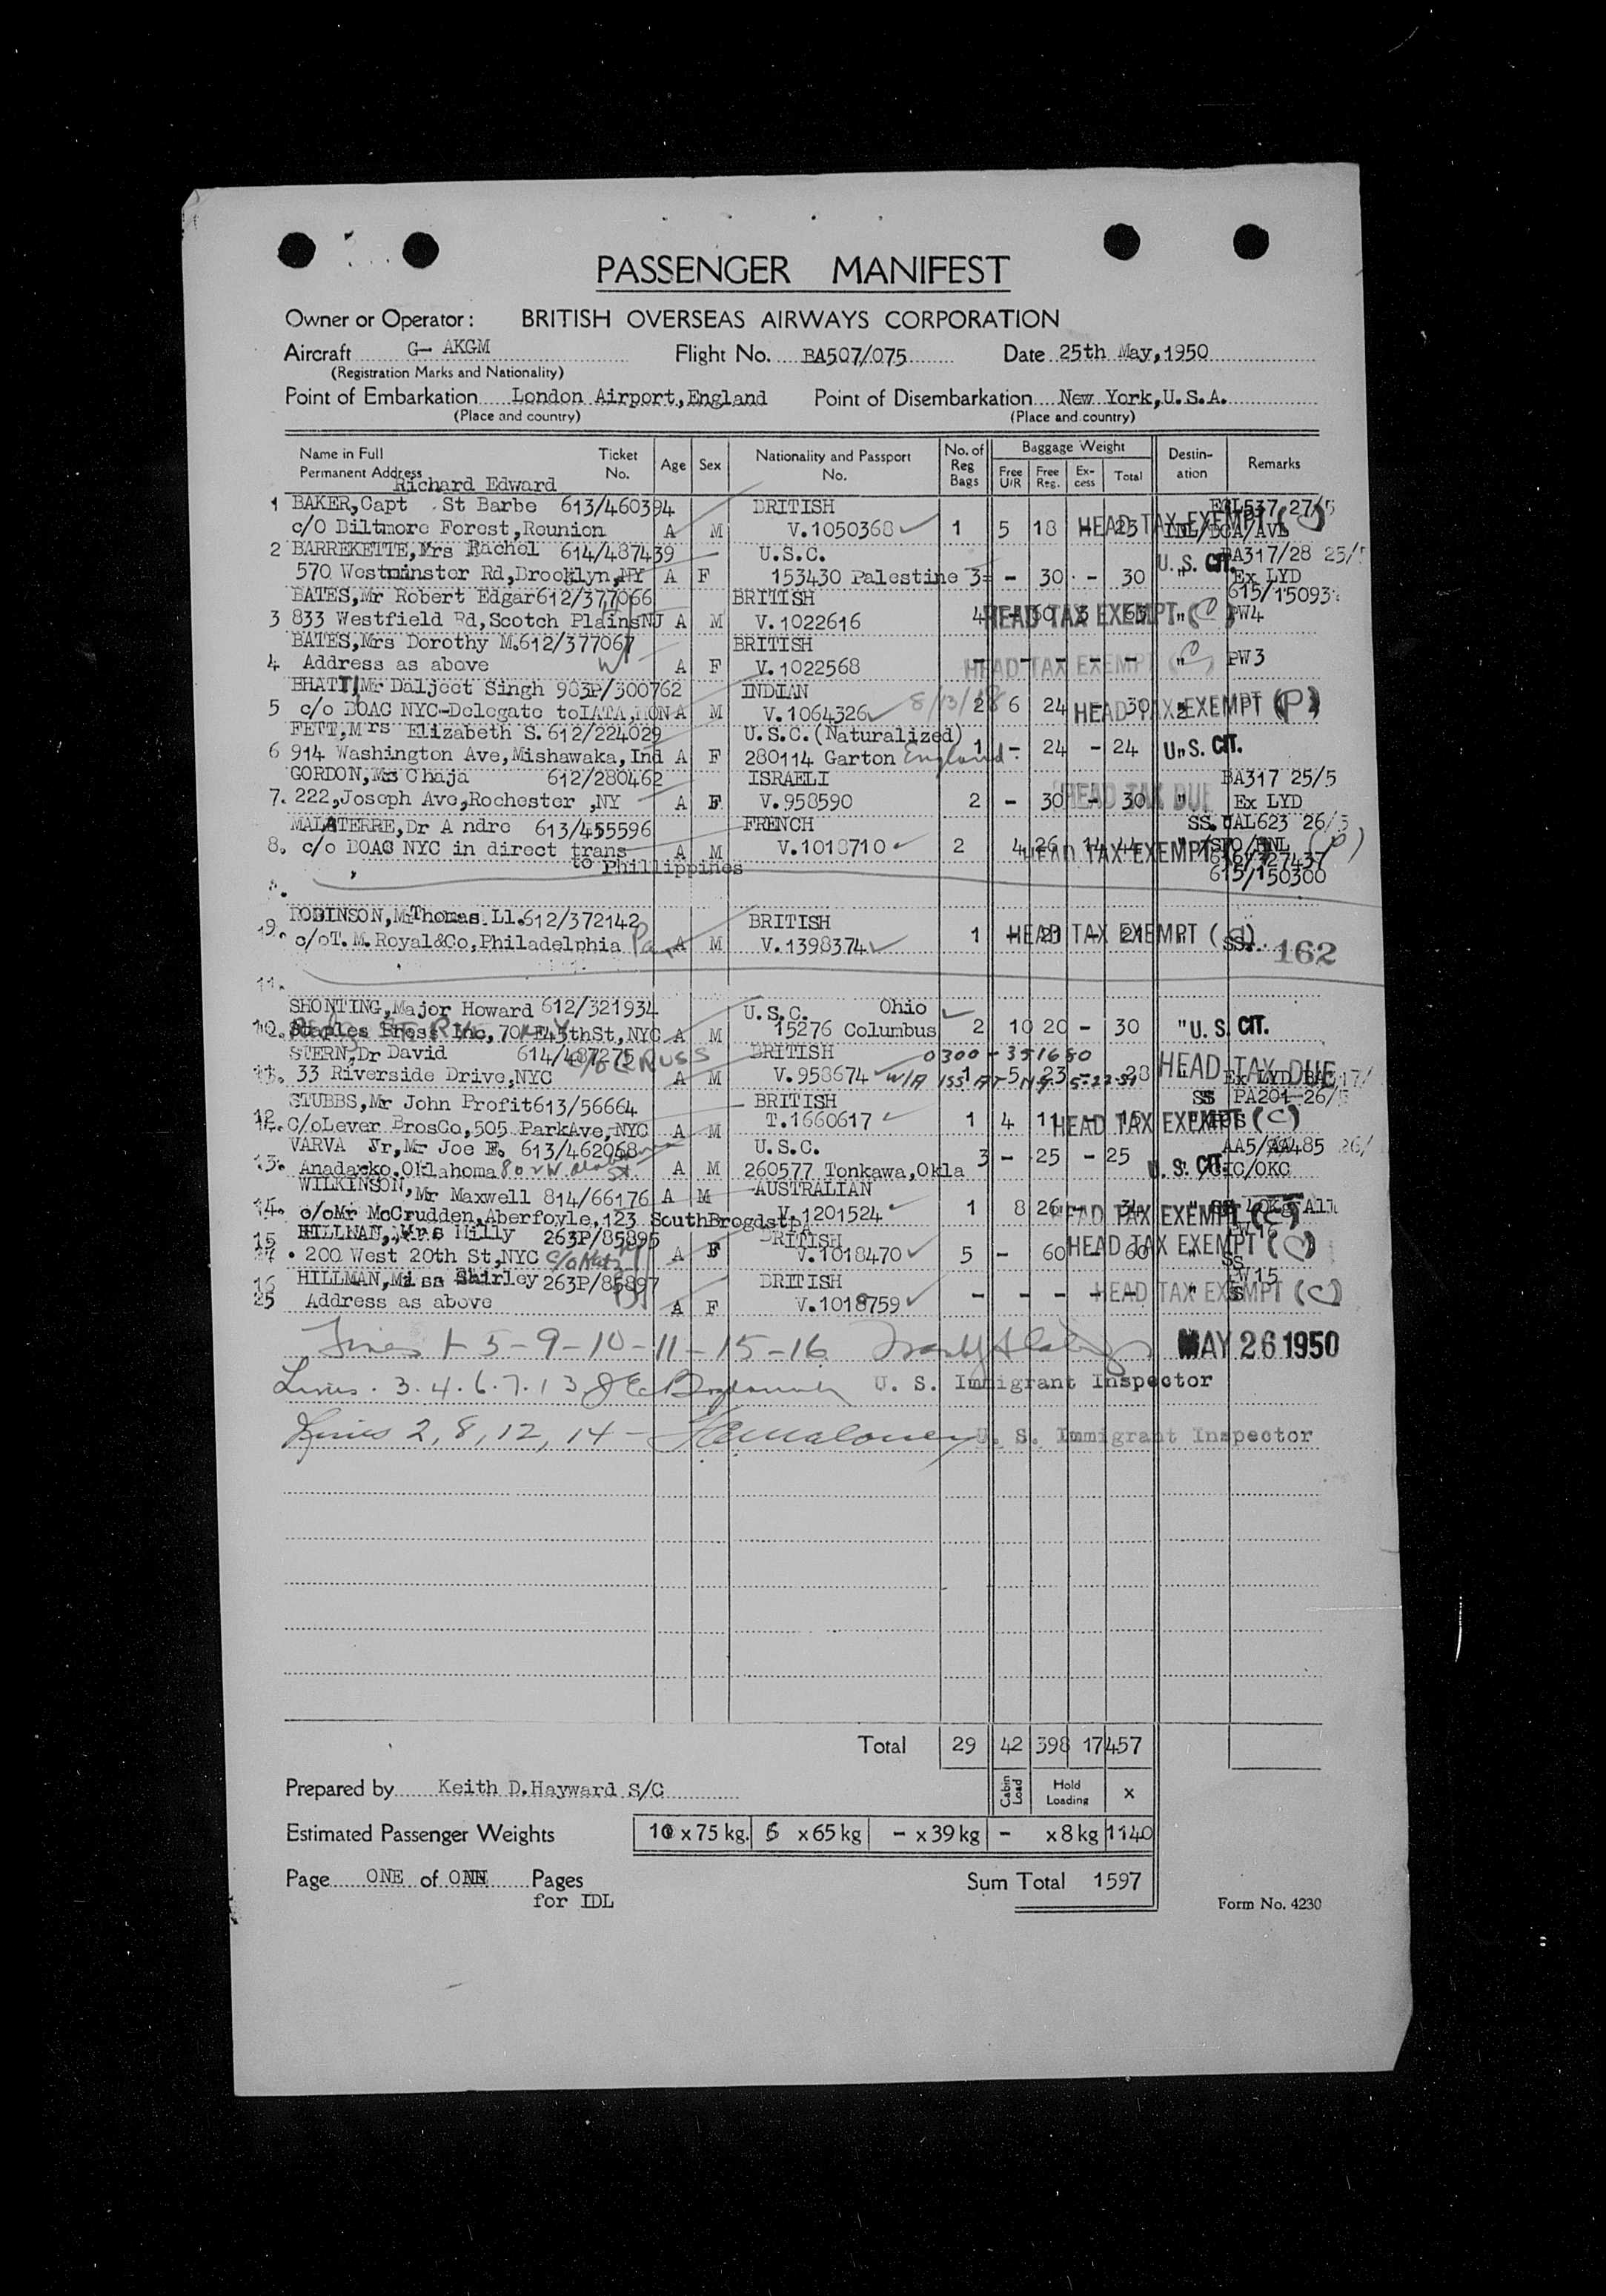 PASSENGER MANIFEST
Owner or Operator: BRITISH OVERSEAS AIRWAYS CORPORATION
Aircraft G- AKGM Flight No. BA507/075 Date 25th May,1950
(Registration Marks and Nationality)
Point of Embarkation London Airport,England Point of Disembarkation New York,U.S.A.
(Place and country) (Place and country)
Name in Full Ticket Age Sex Nationality and Passport No. of Baggage Weight Destin- Remarks
Permanent Address No. No. Reg Bags Free U/R Free Reg. Ex-cess Total ation
Richard Edward
1 BAKER,Capt St Barbe 613/460394 BRITISH 27/5
c/O Diltmore Forest,Reunion A M V.1050368 1 5 18 - 23 HEAD TAX EXEMPT (C) IDL/DCA/AVL
2 BARREKETTE,Mrs Rachel 614/487439 U.S.C. U.S. CIT. BA317/28 25/5
570 Westminster Rd,Brooklyn,NY A F 153430 Palestine 3 - 30 - 30 " Ex LYD
BATES,Mr Robert Edgar 612/377066 BRITISH 615/15093
3 833 Westfield Rd,Scotch PlainsNJ A M V.1022616 4 - 60 3 63 HEAD TAX EXEMPT (C) " PW4
BATES,Mrs Dorothy M.612/377067 BRITISH
4 Address as above A F V.1022568 - - - - - HEAD TAX EXEMPT (C) " PW3
BHATTI,Mr Daljeet Singh 983P/300762 INDIAN 8/13/28
5 c/o BOAC NYC-Delegate toIATA,MON A M V.1064326 2 6 24 - 30 HEAD TAX EXEMPT (P)
FETT,Mrs Elizabeth S.612/224029 U.S.C.(Naturalized)
6 914 Washington Ave,Mishawaka,Ind A F 280114 Garton England 1 - 24 - 24 U.S. CIT.
GORDON,Ms Chaja 612/280462 ISRAELI BA317 25/5
7. 222,Joseph Ave,Rochester ,NY A F V.958590 2 - 30 - 30 HEAD TAX DUE " Ex LYD
MALATERRE,Dr A ndre 613/455596 FRENCH SS. UAL623 26/5
8. c/o BOAC NYC in direct trans A M V.1018710 2 4 26 14 44 HEAD TAX EXEMPT (P) " /SFO/HNL
to Phillippines 615/150300
ROBINSON,Mr Thomas.Ll.612/372142 BRITISH
9. c/oT.M.Royal&Co,Philadelphia Pa A M V.1398374 1 - 21 - 21 HEAD TAX EXEMPT (C) SS. 162
11.
SHONTING,Major Howard 612/321934 U.S.C. Ohio
10. Staples Press Inc,70 E45thSt,NYC A M 15276 Columbus 2 10 20 - 30 " U.S. CIT.
STERN,Dr David 614/487275 BRITISH 0300-351680
11. 33 Riverside Drive,NYC A M V.958674 W/A ISS. AT N.Y. 5-22-51 1 5 23 - 28 HEAD TAX DUE Ex LYD
STUBBS,Mr John Profit613/56664 BRITISH SS PA201-26/5
12. C/oLever BrosCo,505 ParkAve,NYC A M T.1660617 1 4 11 - 15 HEAD TAX EXEMPT (C)
VARVA Jr,Mr Joe E. 613/462068 U.S.C. AA5/AA485 26/
13. Anadarko.Oklahoma A M 260577 Tonkawa,Okla 3 - 25 - 25 U.S. CIT. /OKC
WILKINSON,Mr Maxwell 814/66176 A M AUSTRALIAN
14. c/oMr McCrudden,Aberfoyle,123 SouthBrogdst V.1201524 1 8 26 - 34 HEAD TAX EXEMPT (C)
HILLMAN,Mrs Milly 263P/85895 BRITISH
15 200 West 20th St,NYC A F V.1018470 5 - 60 - 60 HEAD TAX EXEMPT (C) SS
16 HILLMAN,Miss Shirley 263P/85897 BRITISH PW15
25 Address as above A F V.1018759 - - - - - HEAD TAX EXEMPT (C) "
Lines 1-5-9-10-11-15-16 MAY 26 1950
Lines. 3.4.6.7.13 U. S. Immigrant Inspector
Lines 2,8,12,14 - U. S. Immigrant Inspector
Total 29 42 398 17 457
Prepared by Keith D.Hayward S/C Cabin Load Hold Loading x
Estimated Passenger Weights 10 x 75 kg. 6 x 65 kg - x 39 kg - x 8 kg 1140
Page ONE of ONE Pages Sum Total 1597
for IDL Form No. 4230